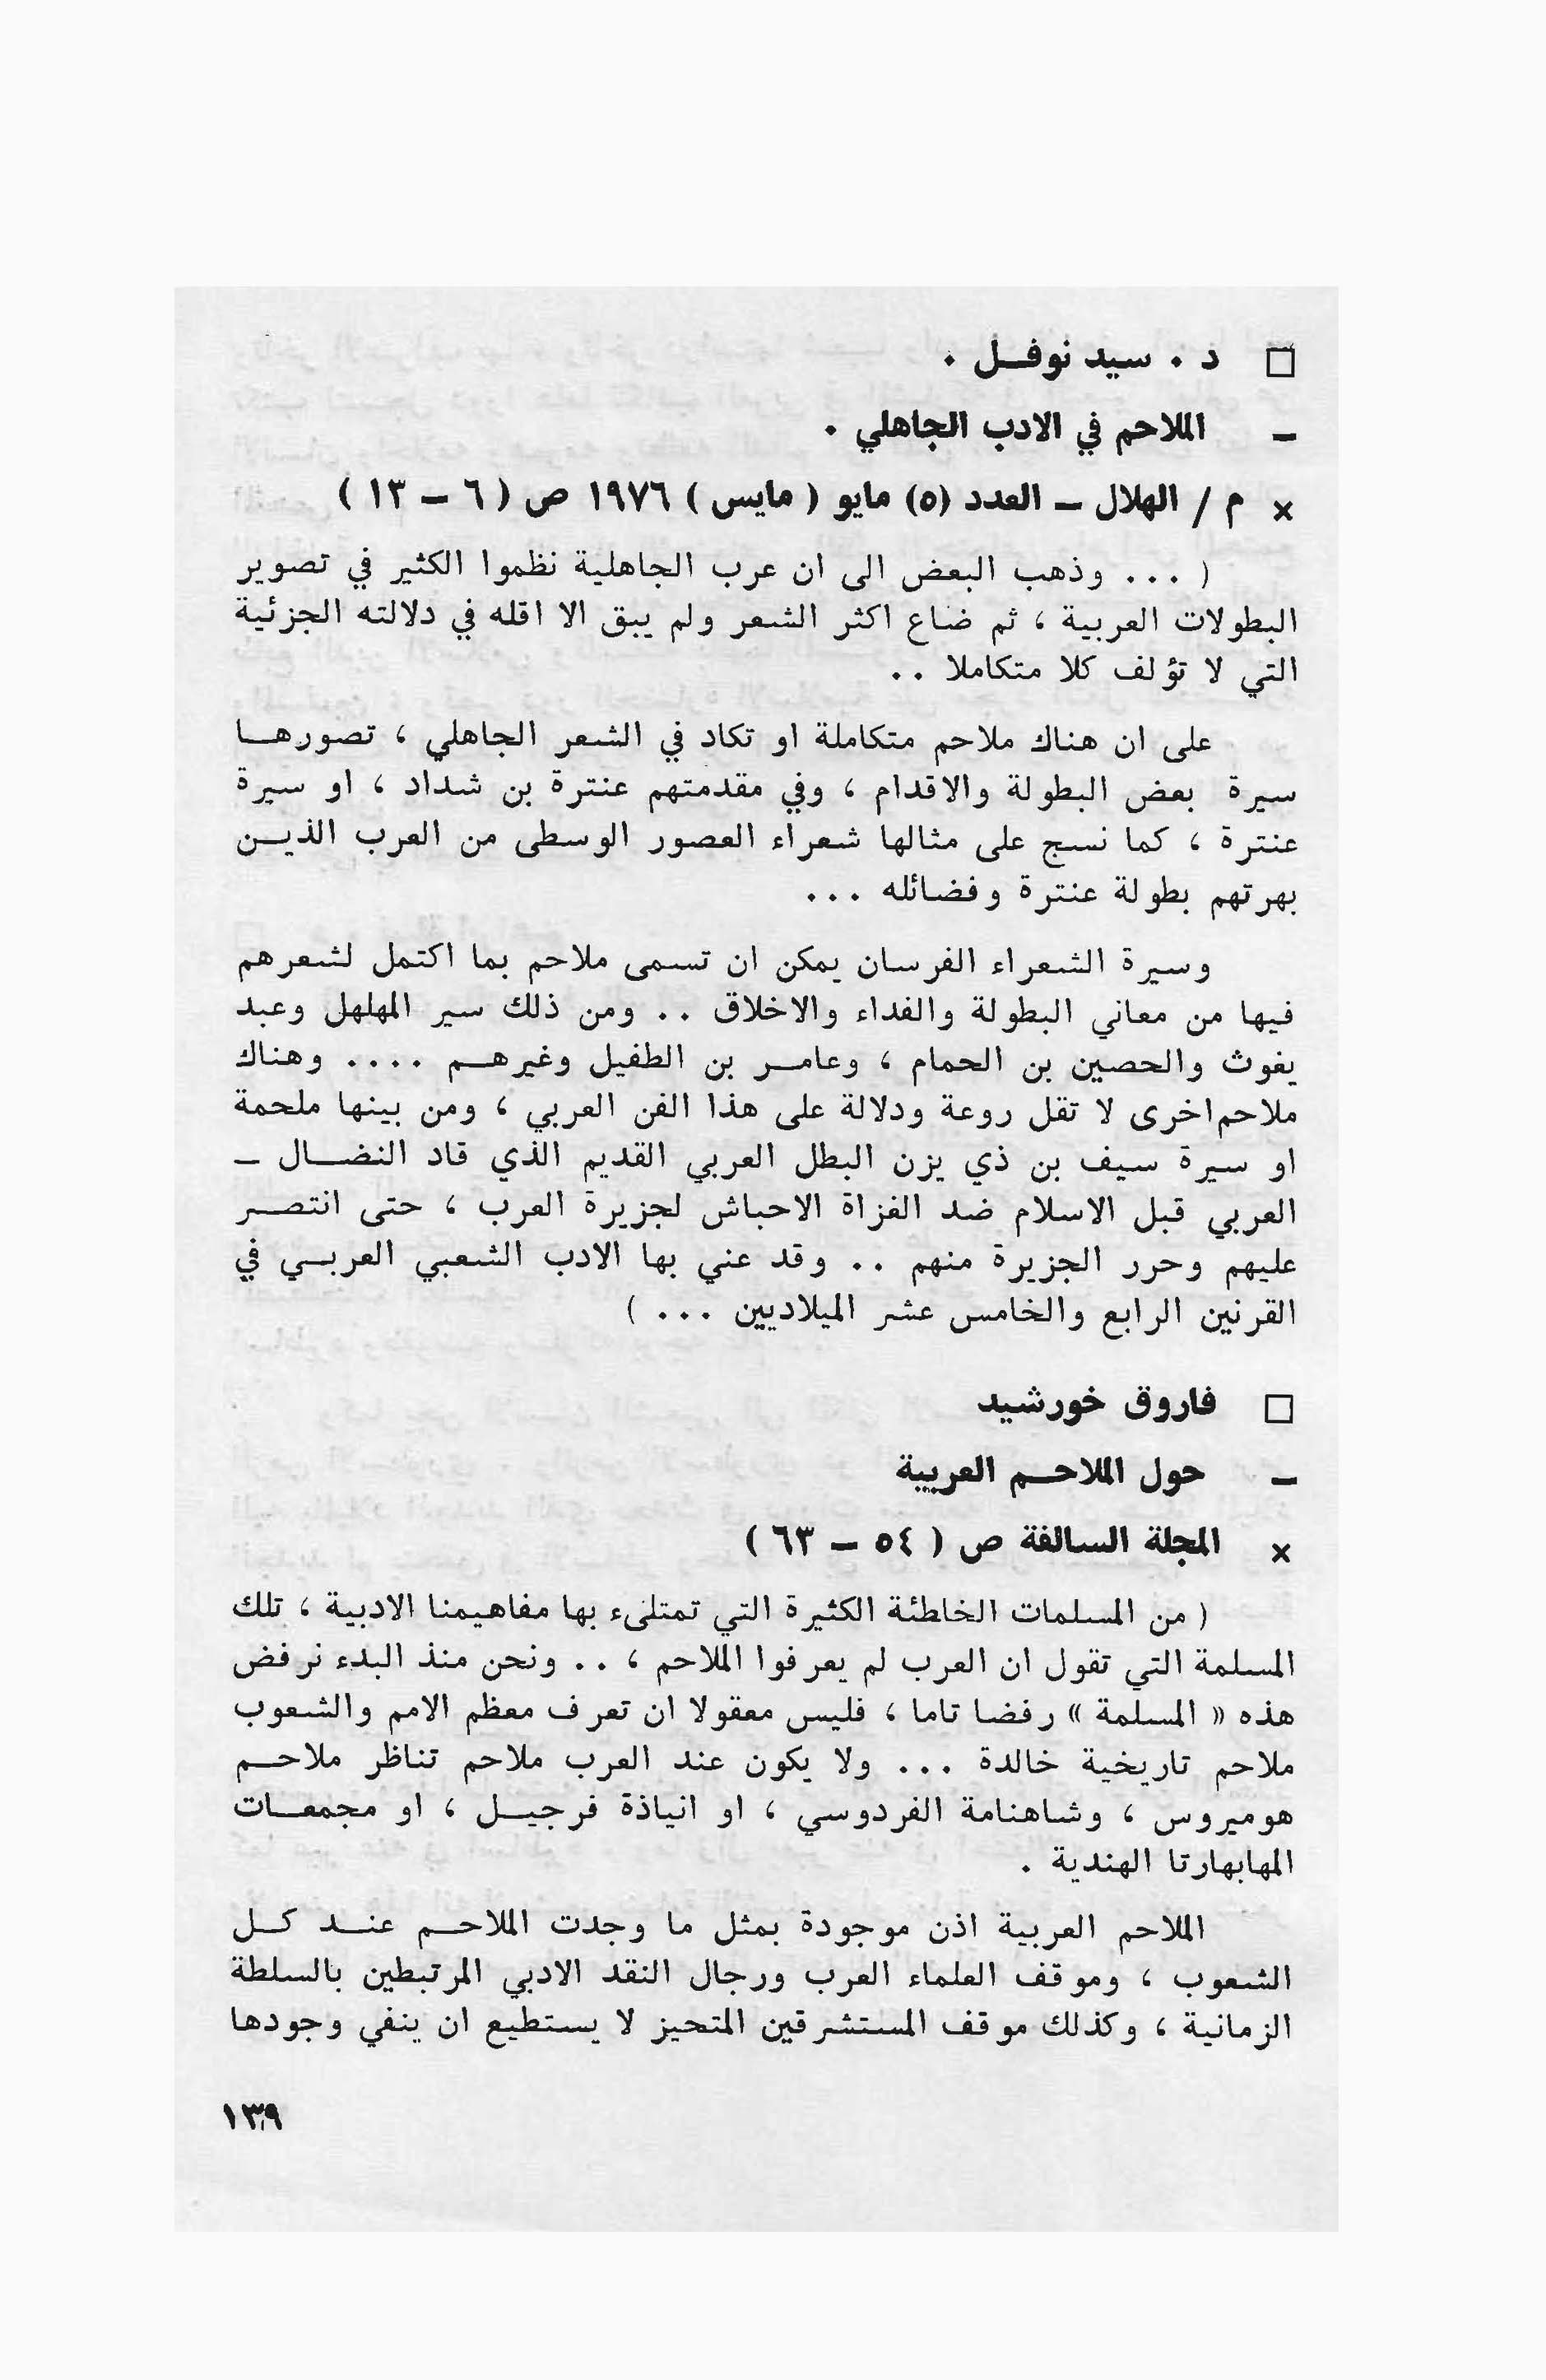 □ د . سيد نوفــل .
ــ الملاحم في الادب الجاهلي .
× م / الهلال ــ العدد (٥) مايو ( مايس ) ١٩٧٦ ص ( ٦ ــ ١٣ )
( ... وذهب البعض الى ان عرب الجاهلية نظموا الكثير في تصوير
البطولات العربية ، ثم ضاع اكثر الشعر ولم يبق الا اقله في دلالته الجزئية
التي لا تؤلف كلا متكاملا ..
على ان هناك ملاحم متكاملة او تكاد في الشعر الجاهلي ، تصورهــا
سيرة بعض البطولة والاقدام ، وفي مقدمتهم عنترة بن شداد ، او سيرة
عنترة ، كما نسج على مثالها شعراء العصور الوسطى من العرب الذيــن
بهرتهم بطولة عنترة وفضائله ...
وسيرة الشعراء الفرسان يمكن ان تسمى ملاحم بما اكتمل لشعرهم
فيها من معاني البطولة والفداء والاخلاق .. ومن ذلك سير المهلهل وعبد
يغوث والحصين بن الحمام ، وعامــر بن الطفيل وغيرهــم .... وهناك
ملاحم اخرى لا تقل روعة ودلالة على هذا الفن العربي ، ومن بينها ملحمة
او سيرة سيف بن ذي يزن البطل العربي القديم الذي قاد النضــال ــ
العربي قبل الاسلام ضد الغزاة الاحباش لجزيرة العرب ، حتى انتصــر
عليهم وحرر الجزيرة منهم .. وقد عني بها الادب الشعبي العربــي في
القرنين الرابع والخامس عشر الميلاديين ... )
□ فاروق خورشيد
ــ حول الملاحــم العربية
× المجلة السالفة ص ( ٥٤ ــ ٦٣ )
( من المسلمات الخاطئة الكثيرة التي تمتلىء بها مفاهيمنا الادبية ، تلك
المسلمة التي تقول ان العرب لم يعرفوا الملاحم ، .. ونحن منذ البدء نرفض
هذه « المسلمة » رفضا تاما ، فليس معقولا ان تعرف معظم الامم والشعوب
ملاحم تاريخية خالدة ... ولا يكون عند العرب ملاحم تناظر ملاحــم
هوميروس ، وشاهنامة الفردوسي ، او انياذة فرجيــل ، او مجمعــات
المهابهارتا الهندية .
الملاحم العربية اذن موجودة بمثل ما وجدت الملاحــم عنــد كــل
الشعوب ، وموقف العلماء العرب ورجال النقد الادبي المرتبطين بالسلطة
الزمانية ، وكذلك موقف المستشرقين المتحيز لا يستطيع ان ينفي وجودها
١٣٩